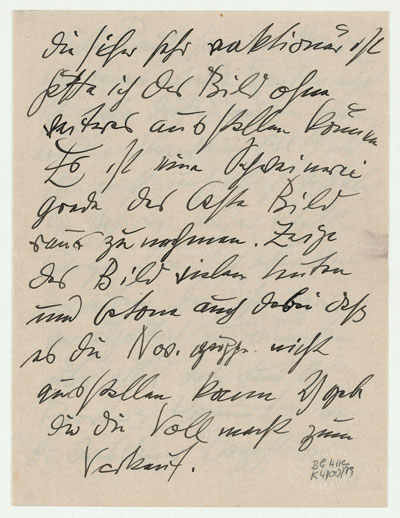 die sicher sehr reaktionär ist
hätte ich das Bild ohne
weiteres ausstellen können
Es ist eine Schweinerei
grade das beste Bild
raus zu nehmen. Zeige
das Bild vielen Leuten
und betone auch dabei daß
es die Nov. gruppe nicht
ausstellen kann Ich gebe
dir die Vollmacht zum
Verkauf.
K 4/00/79